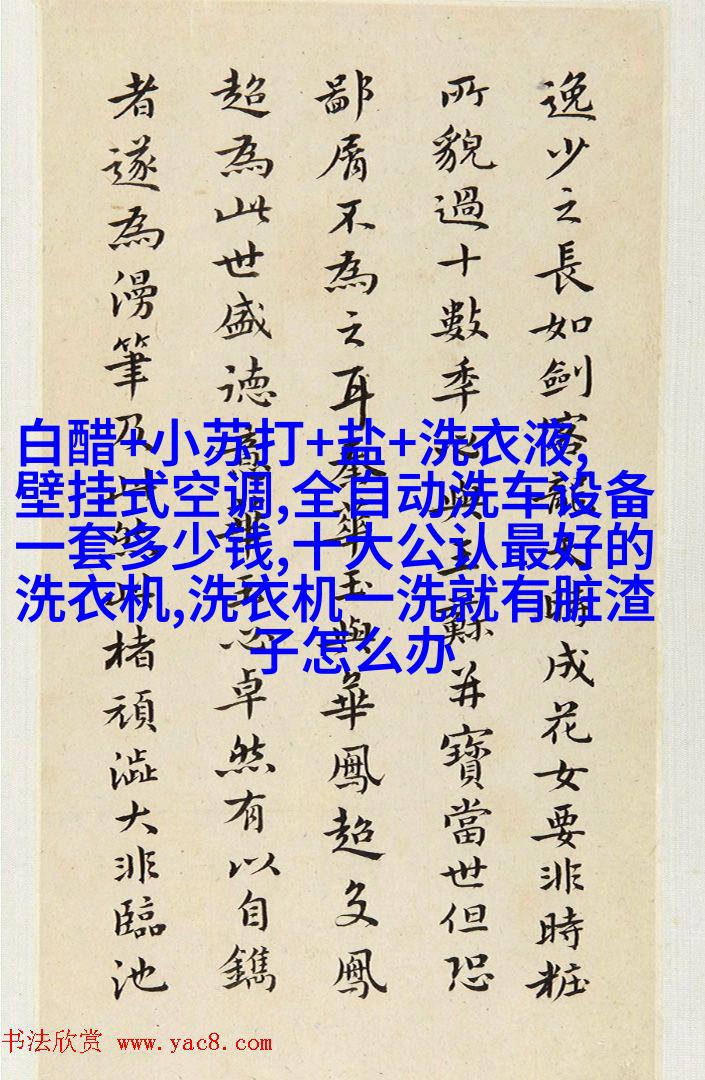 逸少之長如劍女時成花女要非時粧
所貌過十數季與王蘇并寶當世但恐
鄙屑不為之耳華玉與華鳳超文鳳
超為此世盛德心卓然有以自鐫
者遂為漫筆及此楮頑澁大非臨池
白醋+小苏打+盐+洗衣液,
壁挂式空调,全自动洗车设备
一套多少钱,十大公认最好的
洗衣机,洗衣机一洗就有脏渣
子怎么办
书法欣赏 www.yac8.com